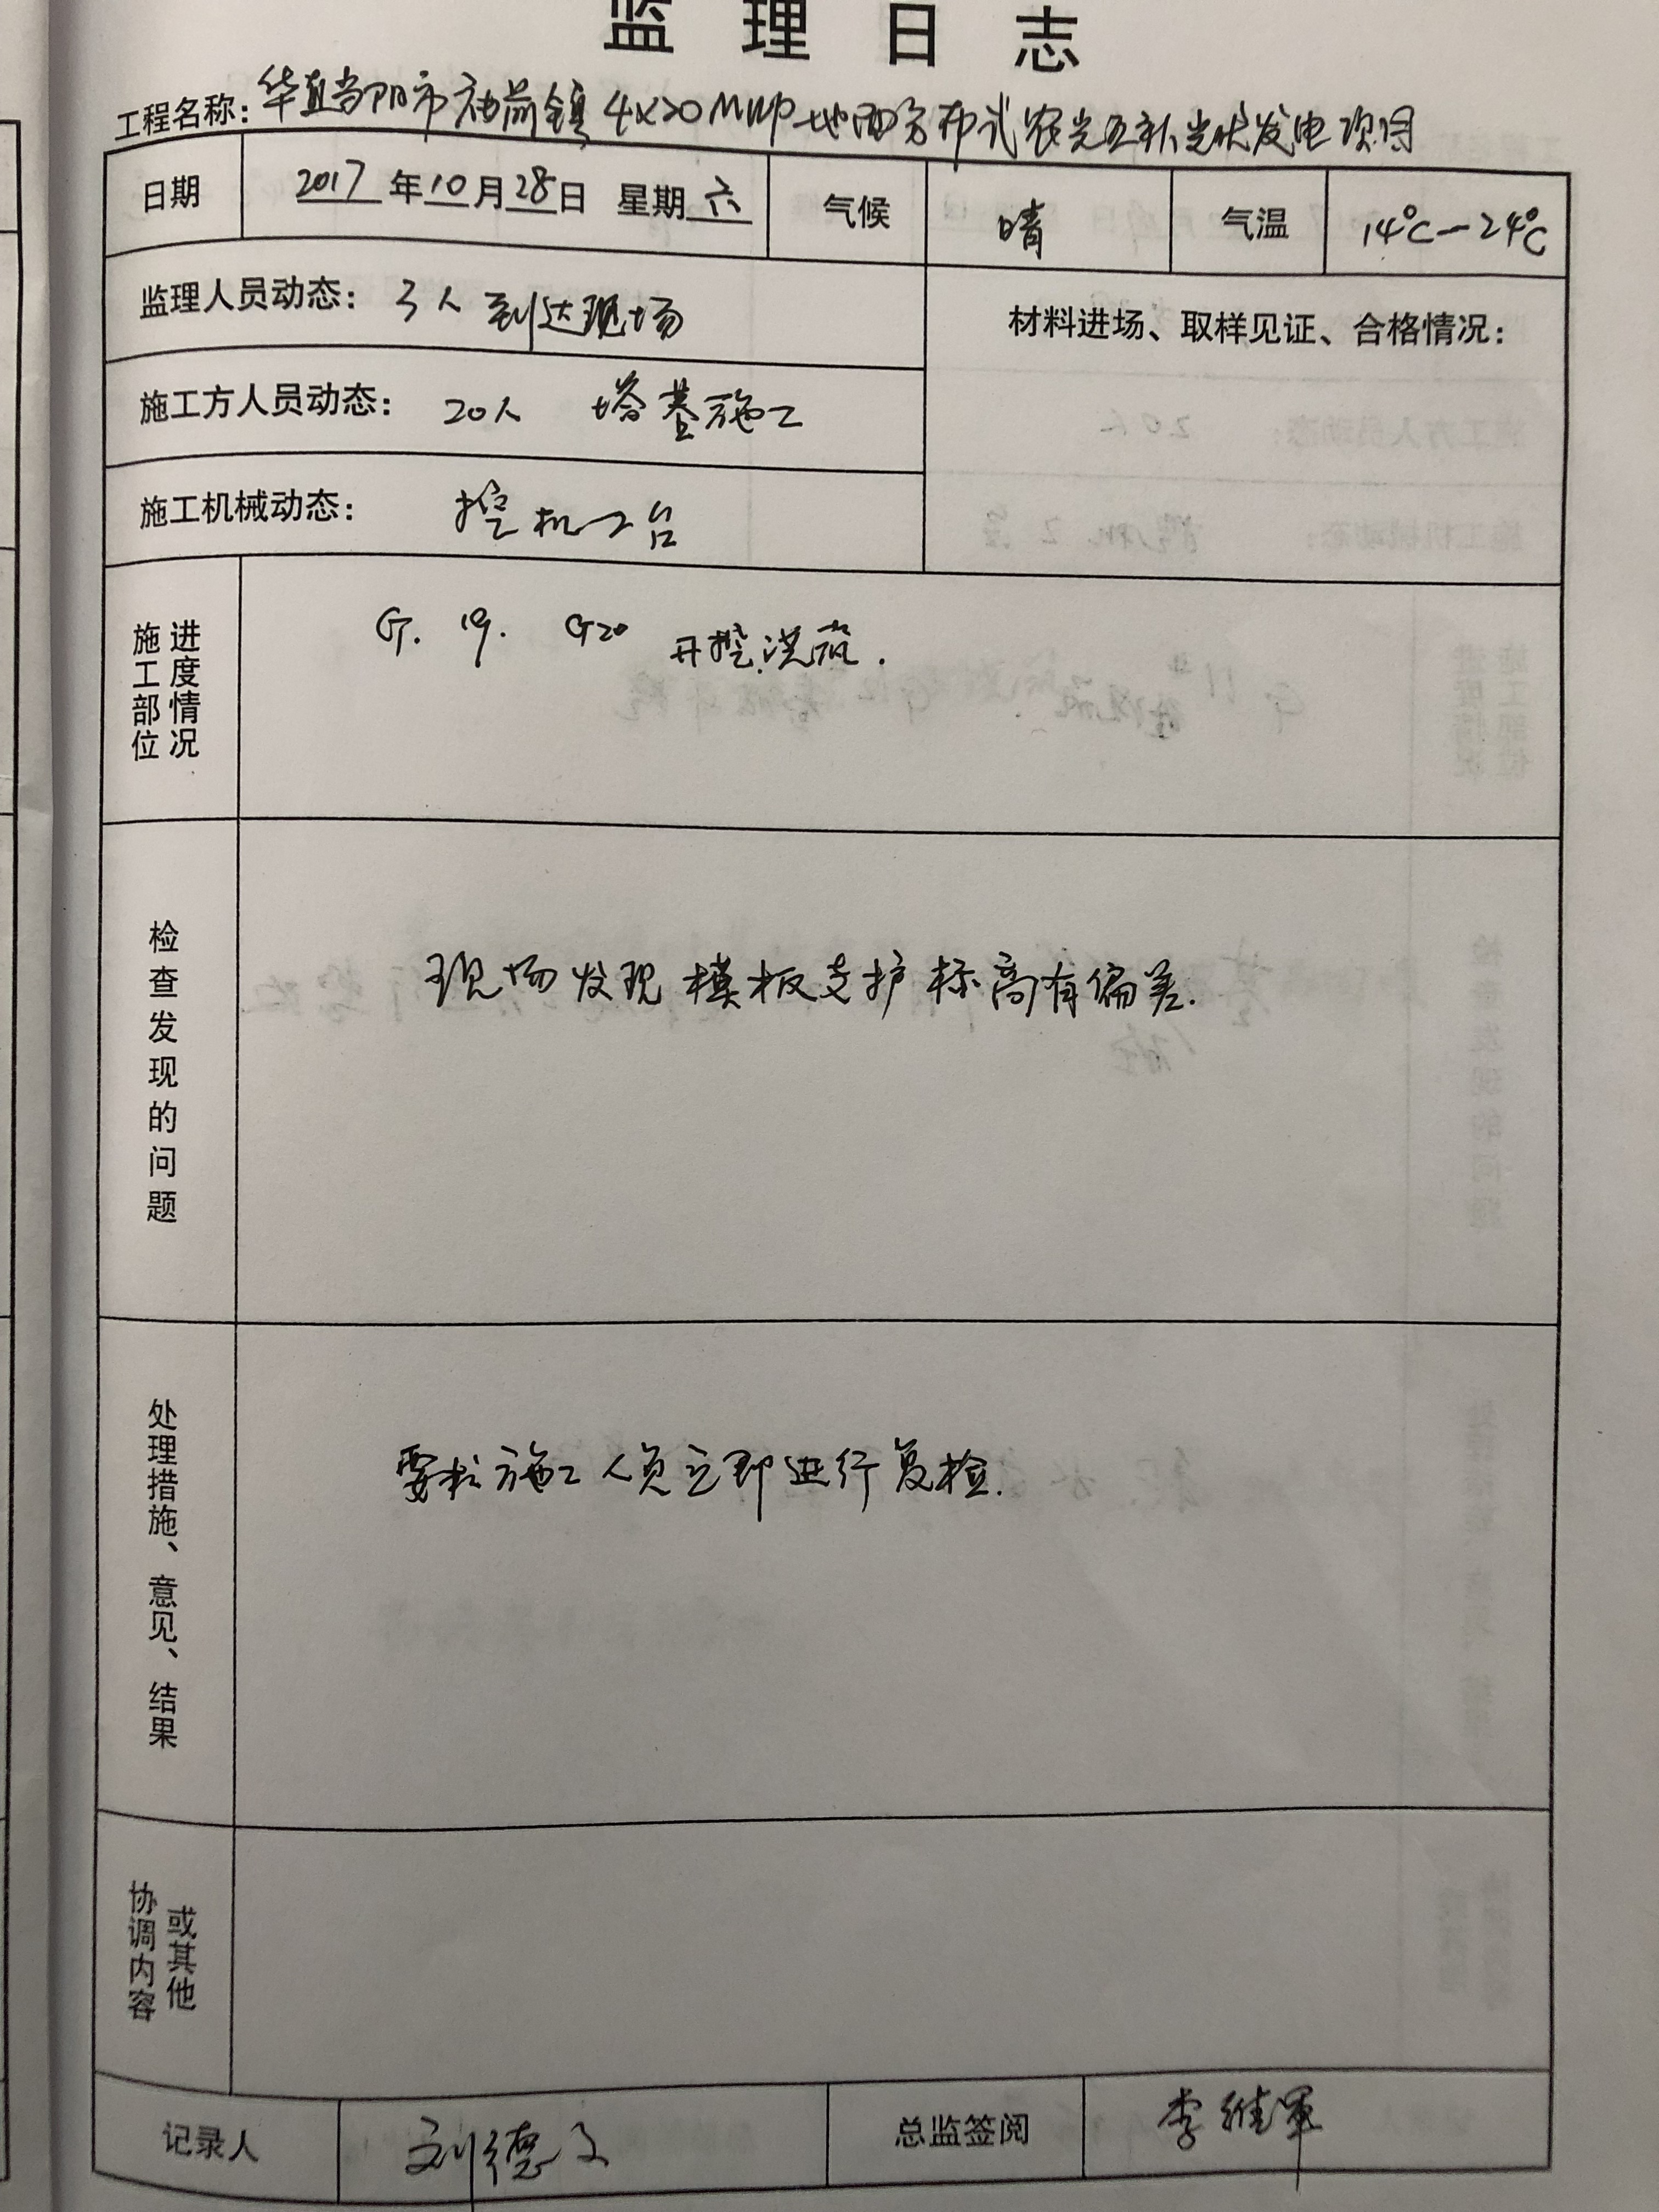 监理日志
工程名称：华直当阳市荷镇4×20MWP地面分布式农光互补光伏发电项目
日期 2017年10月28日 星期六 气候 晴 气温 14℃—24℃
监理人员动态：3人到达现场
材料进场、取样见证、合格情况：
施工方人员动态：20人 塔基施工
施工机械动态：挖机 台
施工部位进度情况
G. 19. G20 开挖浇筑.
检查发现的问题
现场发现模板支护标高有偏差.
处理措施、意见、结果
要求施工人员立即进行复检.
协调内容或其他
记录人 刘德文 总监签阅 李维军